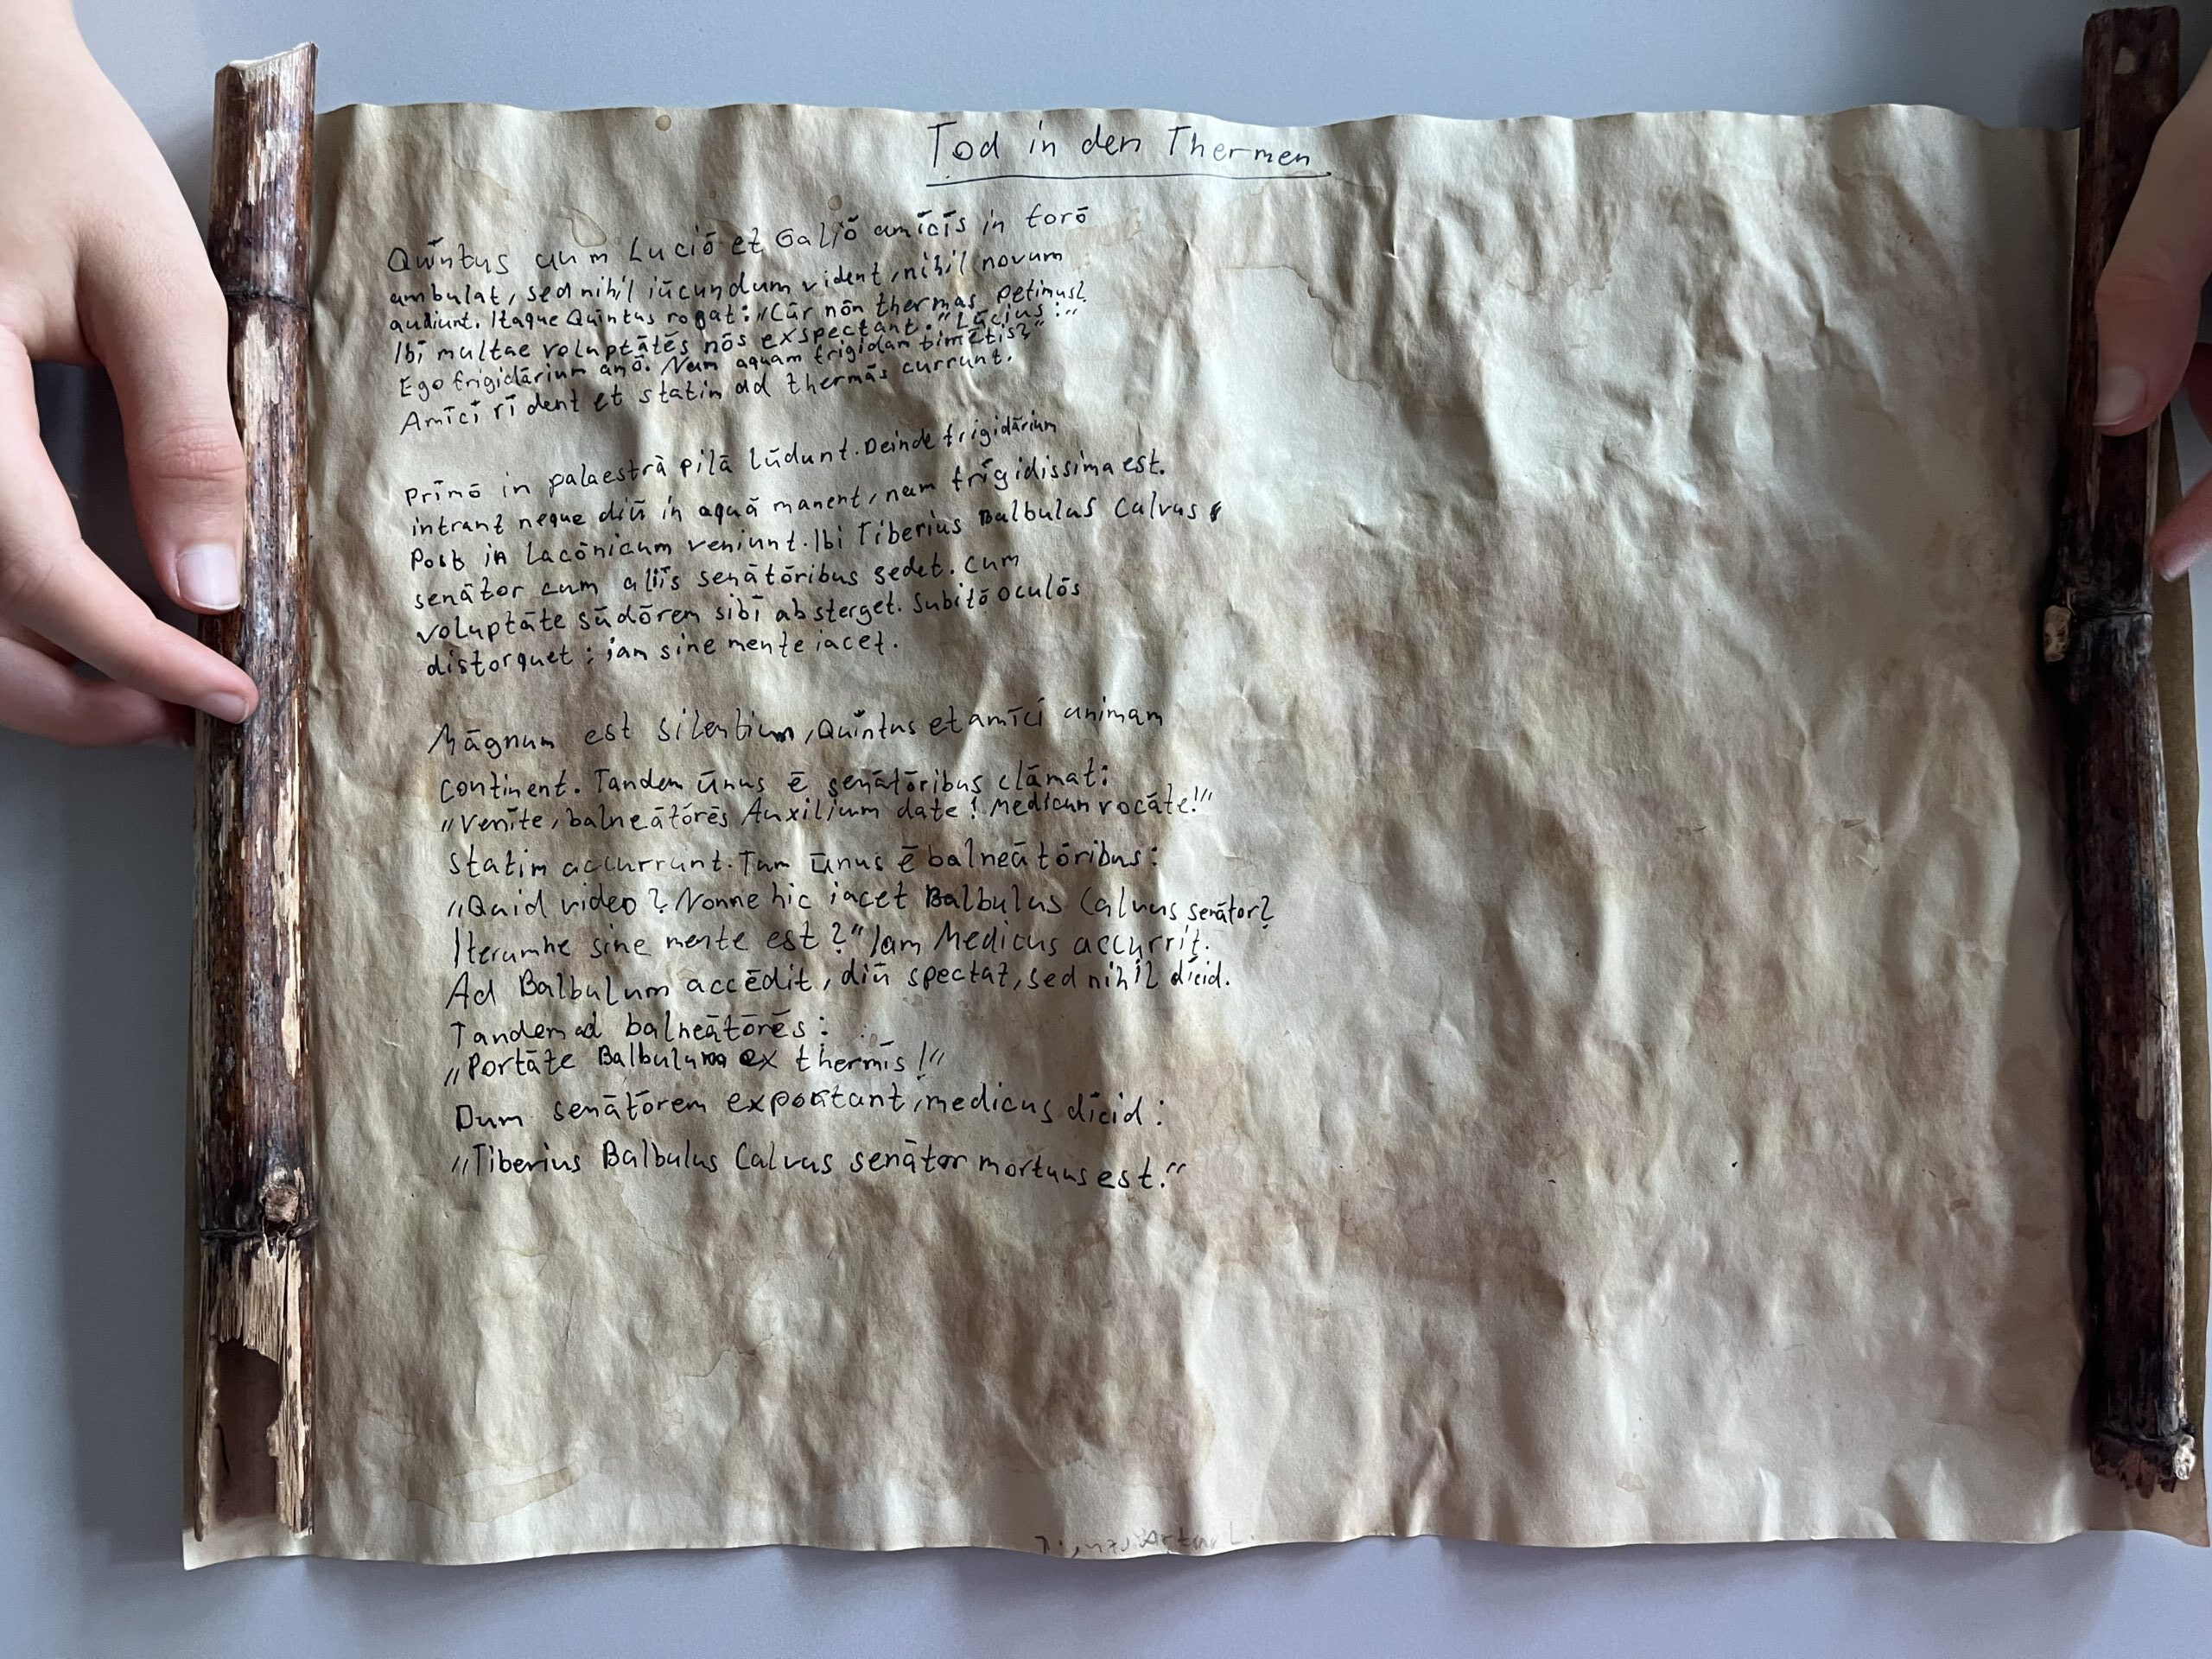 Tod in den Thermen
Quīntus cum Luciō et Galiō amīcīs in forō
ambulat, sed nihil iūcundum vident, nihil novum
audiunt. Itaque Quīntus rogat: „Cūr nōn thermas petimus?
Ibī multae voluptātēs nōs exspectant." Lūcius: „
Ego frigidārium amō. Num aquam frigidam timētis?"
Amīcī rīdent et statim ad thermās currunt.
Prīmō in palaestrā pilā lūdunt. Deinde frigidārium
intrant neque diū in aquā manent, nam frīgidissima est.
Post in Lacōnicum veniunt. Ibi Tiberius Balbulus Calvus
senātor cum aliīs senātōribus sedet. Cum
voluptāte sūdōrem sibī absterget. Subitō oculōs
distorquet; iam sine mente iacet.
Māgnum est silentium, Quīntus et amīcī animam
continent. Tandem ūnus ē senātōribus clāmat:
„Venīte, balneātōrēs Auxilium date! Medicum vocāte!"
Statim accurrunt. Tum ūnus ē balneātōribus:
„Quid video? Nonne hic iacet Balbulus Calvus senātor?
Iterumne sine mente est?" Iam Medicus accurrit.
Ad Balbulum accēdit, diū spectat, sed nihil dīcid.
Tandem ad balneātōrēs:
„Portāte Balbulum ex thermīs!"
Dum senātōrem exportant, medicus dīcid:
„Tiberius Balbulus Calvus senātor mortuus est."